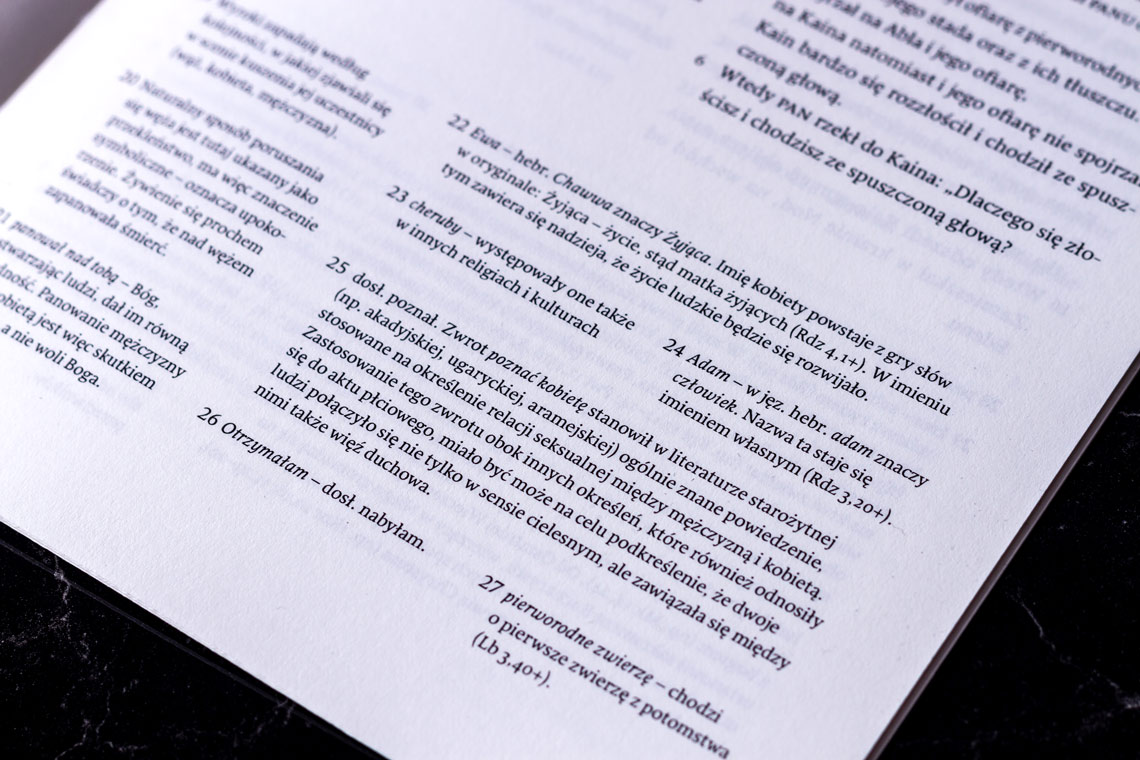 na Kaina natomiast i jego ofiarę nie spojrzał
Kain bardzo się rozzłościł i chodził ze spusz-
czoną głową.
6 Wtedy PAN rzekł do Kaina: „Dlaczego się zło-
ścisz i chodzisz ze spuszczoną głową?
według
kolejności, w jakiej zjawiali się
w scenie kuszenia jej uczestnicy
(wąż, kobieta, mężczyzna).
20 Naturalny sposób poruszania
się węża jest tutaj ukazany jako
przekleństwo, ma więc znaczenie
symboliczne – oznacza upoko-
rzenie. Żywienie się prochem
świadczy o tym, że nad wężem
zapanowała śmierć.
21 panował nad tobą – Bóg,
stwarzając ludzi, dał im równą
godność. Panowanie mężczyzny
kobietą jest więc skutkiem
a nie woli Boga.
22 Ewa – hebr. Chawwa znaczy Żyjąca. Imię kobiety powstaje z gry słów
w oryginale: Żyjąca – życie, stąd matka żyjących (Rdz 4,1+). W imieniu
tym zawiera się nadzieja, że życie ludzkie będzie się rozwijało.
23 cheruby – występowały one także
w innych religiach i kulturach
24 Adam – w jęz. hebr. adam znaczy
człowiek. Nazwa ta staje się
imieniem własnym (Rdz 3,20+).
25 dosł. poznał. Zwrot poznać kobietę stanowił w literaturze starożytnej
(np. akadyjskiej, ugaryckiej, aramejskiej) ogólnie znane powiedzenie,
stosowane na określenie relacji seksualnej między mężczyzną i kobietą.
Zastosowanie tego zwrotu obok innych określeń, które również odnosiły
się do aktu płciowego, miało być może na celu podkreślenie, że dwoje
ludzi połączyło się nie tylko w sensie cielesnym, ale zawiązała się między
nimi także więź duchowa.
26 Otrzymałam – dosł. nabyłam.
27 pierworodne zwierzę – chodzi
o pierwsze zwierzę z potomstwa
(Lb 3,40+).